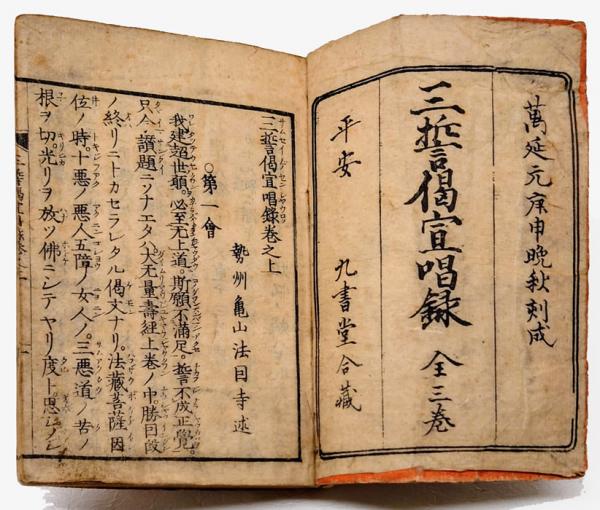 萬延元庚申晩秋刻成
三誓偈宣唱録 全三巻
平安 九書堂合藏
三誓偈宣唱録巻之上
勢州亀山法因寺述
○第一會
我建超世願。必至无上道。斯願不滿足。誓不成正覺。
只今讃題ニソナエタハ大无量壽經上巻ノ中。勝因段
ノ終リニトカセラレタル偈文ナリ。法藏菩薩因
位ノ時。十悪ノ悪人五障ノ女人ノ。三悪道ノ苦ノ
根ヲ切。光リヲ放ツ佛ニシテヤリ度ト。思シメシ